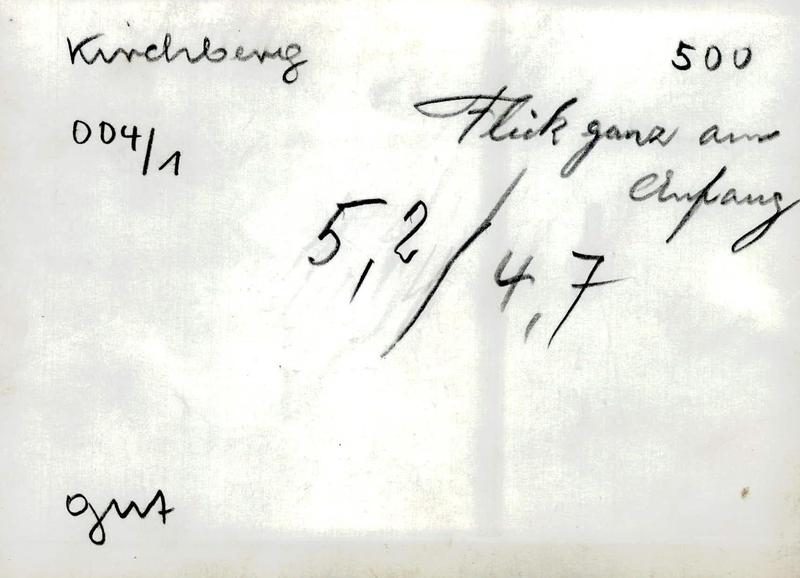 Kirchberg 500
004/1 Flick ganz am
Anfang
5,2/4,7
gut